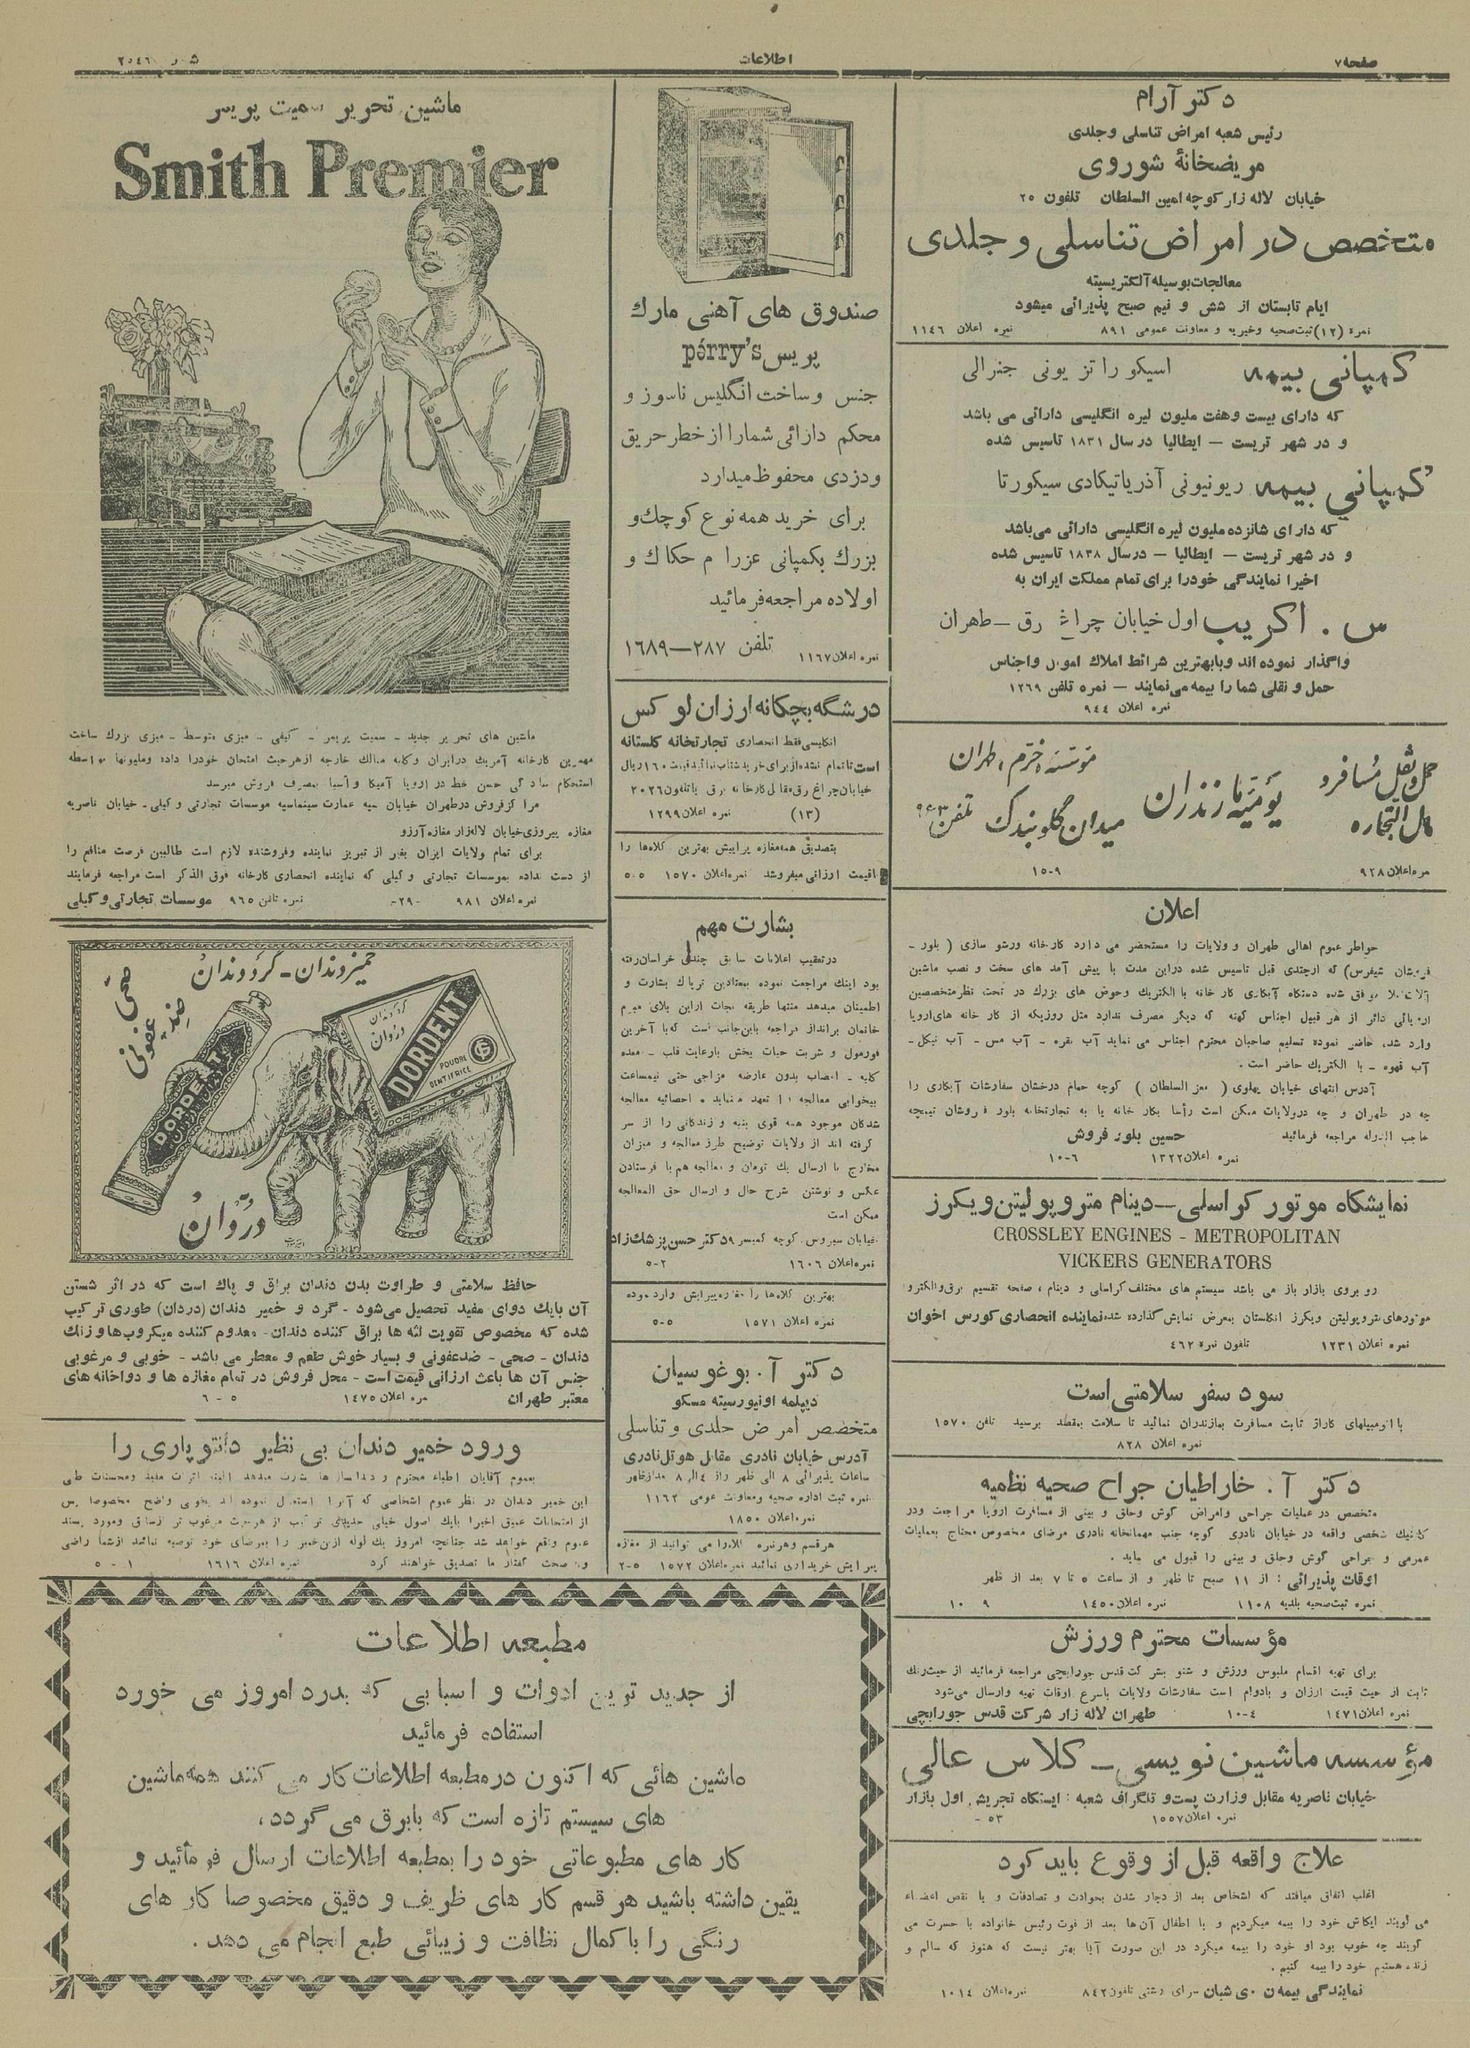 صفحه ۷
اطلاعات
۲۵۴۶
دکتر آرام
رئیس شعبه امراض تناسلی وجلدی
مریضخانهٔ شوروی
خیابان لاله زار کوچه امین السلطان تلفون ۲۵
متخصص در امراض تناسلی و جلدی
معالجات بوسیله آلکتریسیته
ایام تابستان از شش و نیم صبح پذیرائی میشود
نمره (۱۲) ثبت صحیه وخیریه و معاونت عمومی ۸۹۱ نمره اعلان ۱۱۴۶
کمپانی بیمه اسیکو راتز یونی جنرالی
که دارای بیست وهفت ملیون لیره انگلیسی دارائی می باشد
و در شهر تریست – ایطالیا در سال ۱۸۳۱ تاسیس شده
کمپانی بیمه ریونیونی آذریاتیکادی سیکورتا
که دارای شانزده ملیون لیره انگلیسی دارائی می‌باشد
و در شهر تریست – ایطالیا – درسال ۱۸۳۸ تاسیس شده
اخیرا نمایندگی خودرا برای تمام مملکت ایران به
س . اکریب اول خیابان چراغ رق – طهران
واگذار نموده اند وبابهترین شرائط املاک اموال واجناس
حمل و نقلی شما را بیمه می‌نمایند – نمره تلفن ۱۲۶۹
نمره اعلان ۹۴۴
حمل و نقل مسافر و
مال التجاره
یومیه مازندران
موسسه خرم ، طهران
میدان گلوبندک تلفن ۹۶۳
نمره اعلان ۹۲۸ ۹-۱۵
اعلان
خواطر عموم اهالی طهران و ولایات را مستحضر می دارد کارخانه ورشو سازی ( بلور -
فروشان شیفرس) که ازچندی قبل تاسیس شده دراین مدت با پیش آمد های سخت و نصب ماشین
آلات موفق شده دستگاه آبکاری کار خانه باالکتریک وحوض های بزرک در تحت نظر متخصصین
اروپائی دائر از هر قبیل اجناس کهنه که دیگر مصرف ندارد مثل روزیکه از کار خانه های اروپا
وارد شد، حاضر نموده تسلیم صاحبان محترم اجناس می نماید آب نقره - آب مس - آب نیکل -
آب قهوه - با الکتریک حاضر است .
آدرس انتهای خیابان پهلوی ( معز السلطان ) کوچه حمام درخشان سفارشات آبکاری را
چه در طهران و چه درولایات ممکن است رأسا بکار خانه یا به تجارتخانه بلور فروشان تیمچه
حاجب الدوله مراجعه فرمائید حسین بلور فروش
نمره اعلان ۱۳۲۲ ۶-۱۰
نمایشگاه موتور کراسلی – دینام متروپولیتن ویکرز
CROSSLEY ENGINES - METROPOLITAN
VICKERS GENERATORS
رو بروی بازار باز می باشد سیستم های مختلف کراسلی و دینام ، صفحه تقسیم برق والکترو
موتورهای متروپولیتن ویکرز انگلستان بمعرض نمایش گذارده شده نماینده انحصاری کورس اخوان
نمره اعلان ۱۲۳۱ تلفون نمره ۴۶۲
سود سفر سلامتی است
با اتومبیلهای کاراژ ثابت مسافرت بمازندران نمائید تا سلامت بمقصد برسید تلفن ۱۵۷۰
نمره اعلان ۸۲۸
دکتر آ . خاراطیان جراح صحیه نظمیه
متخصص در عملیات جراحی وامراض گوش وحلق و بینی از مسافرت اروپا مراجعت ودر
کلنیک شخصی واقعه در خیابان نادری کوچه جنب مهمانخانه نادری مرضای مخصوص محتاج بعملیات
عمومی و جراحی گوش وحلق و بینی را قبول می نماید .
اوقات پذیرائی : از ۱۱ صبح تا ظهر و از ساعت ۵ تا ۷ بعد از ظهر
نمره ثبت صحیه بلدیه ۱۱۰۸ نمره اعلان ۱۴۵۰ ۹ ۱۰
مؤسسات محترم ورزش
برای تهیه اقسام ملبوس ورزش و شنو بشرکت قدس جورابچی مراجعه فرمائید از حیث رنک
ثابت از حیث قیمت ارزان و بادوام است سفارشات ولایات باسرع اوقات تهیه وارسال می‌شود
نمره اعلان ۱۴۷۱ ۴-۱۰ طهران لاله زار شرکت قدس جورابچی
مؤسسه ماشین نویسی – کلاس عالی
خیابان ناصریه مقابل وزارت پست و تلگراف شعبه : ایستگاه تجریش اول بازار
نمره اعلان ۱۵۵۷ ۵۳-
علاج واقعه قبل از وقوع باید کرد
اغلب اتفاق میافتد که اشخاص بعد از دچار شدن بحوادث و تصادفات و یا نقص اعضاء
می گویند ایکاش خود را بیمه میکردیم و یا اطفال آن ها بعد از فوت رئیس خانواده با حسرت می
گویند چه خوب بود او خود را بیمه میکرد در این صورت آیا بهتر نیست که هنوز که سالم و
زنده هستیم خود را بیمه کنیم .
نمایندگی بیمه سرای رشتی تلفون ۸۴۲ نمره اعلان ۱۰۱۴
صندوق های آهنی مارک
پریس pérry's
جنس وساخت انگلیس ناسوز و
محکم دارائی شمارا از خطر حریق
ودزدی محفوظ میدارد
برای خرید همه نوع کوچک و
بزرک بکمپانی عزرا م حکاک و
اولاده مراجعه فرمائید
تلفن ۲۸۷–۱۶۸۹
نمره اعلان ۱۱۶۷
درشگه بچکانه ارزان لوکس
انگلیسی فقط انحصاری تجارتخانه گلستانه
است تاتمام نشده از برای خرید شتاب نمائید قیمت ۱۶۰ ریال
خیابان چراغ برق مقابل کارخانه برق باتلفون ۲۰۲۶
(۱۳) نمره اعلان ۱۲۹۹
بتصدیق همه مغازه پرایش بهترین کلاه‌ها را
باقیمت ارزانی میفروشد نمره اعلان ۱۵۷۰ ۵-۵
بشارت مهم
درتعقیب اعلانات سابق چندی خراسان رفته
بود اینک مراجعت نموده بمعتادین تریاک بشارت و
اطمینان میدهد منتها طریقه نجات ازاین بلای مبرم
خانمان برانداز مراجعه باینجانب است که با آخرین
فورمول و شربت حیات بخش بارعایت قلب - معده
کلیه - اعصاب بدون عارضه مزاجی حتی نیمساعت
بیخوابی معالجه را تعهد مینماید . احصائیه معالجه
شدگان موجود همه قوی بنیه و زندگانی را از سر
گرفته اند از ولایات توضیح طرز معالجه و میزان
مخارج با ارسال یک تومان و معالجه هم با فرستادن
عکس و نوشتن شرح حال و ارسال حق المعالجه
ممکن است
خیابان سیروس کوچه کمیسر ۹ دکتر حسن پزشک زاد
نمره اعلان ۱۶۰۶ ۲-۵
بهترین کلاه‌ها را مغازه پیرایش وارد نموده
نمره اعلان ۱۵۷۱ ۵-۵
دکتر آ . بوغوسیان
دیپلمه اونیورسیته مسکو
متخصص امراض جلدی و تناسلی
آدرس خیابان نادری مقابل هوتل نادری
ساعات پذیرائی ۸ الی ظهر و از ۴ الی ۸ بعد از ظهر
نمره ثبت اداره صحیه ومعاونت عمومی ۱۱۶۲
نمره اعلان ۱۸۵۰
هر قسم وهر نمره کلاه را می توانید از مغازه
پیرایش خریداری نمائید نمره اعلان ۱۵۷۲ ۵-۲
ماشین تحریر سمیت پریمر
Smith Premier
ماشین های تحریر جدید - سمیت پریمر - کیفی - میزی متوسط - میزی بزرک ساخت
مهمترین کارخانه آمریک درایران وکلیه ممالک خارجه ازهرحیث امتحان خودرا داده وملیونها بواسطه
استحکام سادگی حسن خط در اروپا آمریکا وآسیا بمصرف فروش میرسد
مرکز فروش درطهران خیابان سپه عمارت سینماسپه موسسات تجارتی و کیلی - خیابان ناصریه
مغازه پیروزی خیابان لاله‌زار مغازه آرزو
برای تمام ولایات ایران بغیر از تبریز نماینده وفروشنده لازم است طالبین فرصت متافع را
از دست نداده بموسسات تجارتی و کیلی که نماینده انحصاری کارخانه فوق الذکر است مراجعه فرمایند
نمره اعلان ۹۸۱ -۲۹- نمره تلفن ۹۶۵ موسسات تجارتی وکیلی
خمیر دندان - گرد دندان
صحی
ضد عفونی
گرد دندان
دردان
DORDENT
POUDRE
DENTIFRICE
DORDENT
دردان
حافظ سلامتی و طراوت بدن دندان براق و پاک است که در اثر شستن
آن بایک دوای مفید تحصیل می‌شود - گرد و خمیر دندان (دردان) طوری ترکیب
شده که مخصوص تقویت لثه ها براق کننده دندان - معدوم کننده میکروب‌ها و زنک
دندان - صحی - ضدعفونی و بسیار خوش طعم و معطر می باشد - خوبی و مرغوبی
جنس آن ها باعث ارزانی قیمت است - محل فروش در تمام مغازه ها و دواخانه های
معتبر طهران نمره اعلان ۱۴۷۵ ۵ - ۶
ورود خمیر دندان بی نظیر دانتوپاری را
بعموم آقایان اطباء محترم و دندانسازها بشارت میدهد
این خمیر دندان در نظر عموم اشخاصی که آنرا استعمال نموده اند بخوبی واضح مخصوصا پس
از امتحانات عمیق اخیرا بایک اصول خیلی جدیدی ترکیب از هرحیث مرغوب تر از سابق ومورد پسند
عموم واقع خواهد شد چنانچه امروز یک لوله از این خمیر را بمرضای خود توصیه نمائید ازشما راضی
و صحت گفتار ما تصدیق خواهند کرد نمره اعلان ۱۶۱۶ ۱ - ۵
مطبعه اطلاعات
از جدید ترین ادوات و اسبابی که بدرد امروز می خورد
استفاده فرمائید
ماشین هائی که اکنون در مطبعه اطلاعات کار می کنند همه ماشین
های سیستم تازه است که با برق می گردد ،
کار های مطبوعاتی خود را بمطبعه اطلاعات ارسال فرمائید و
یقین داشته باشید هر قسم کار های ظریف و دقیق مخصوصا کار های
رنگی را باکمال نظافت و زیبائی طبع انجام می دهد .